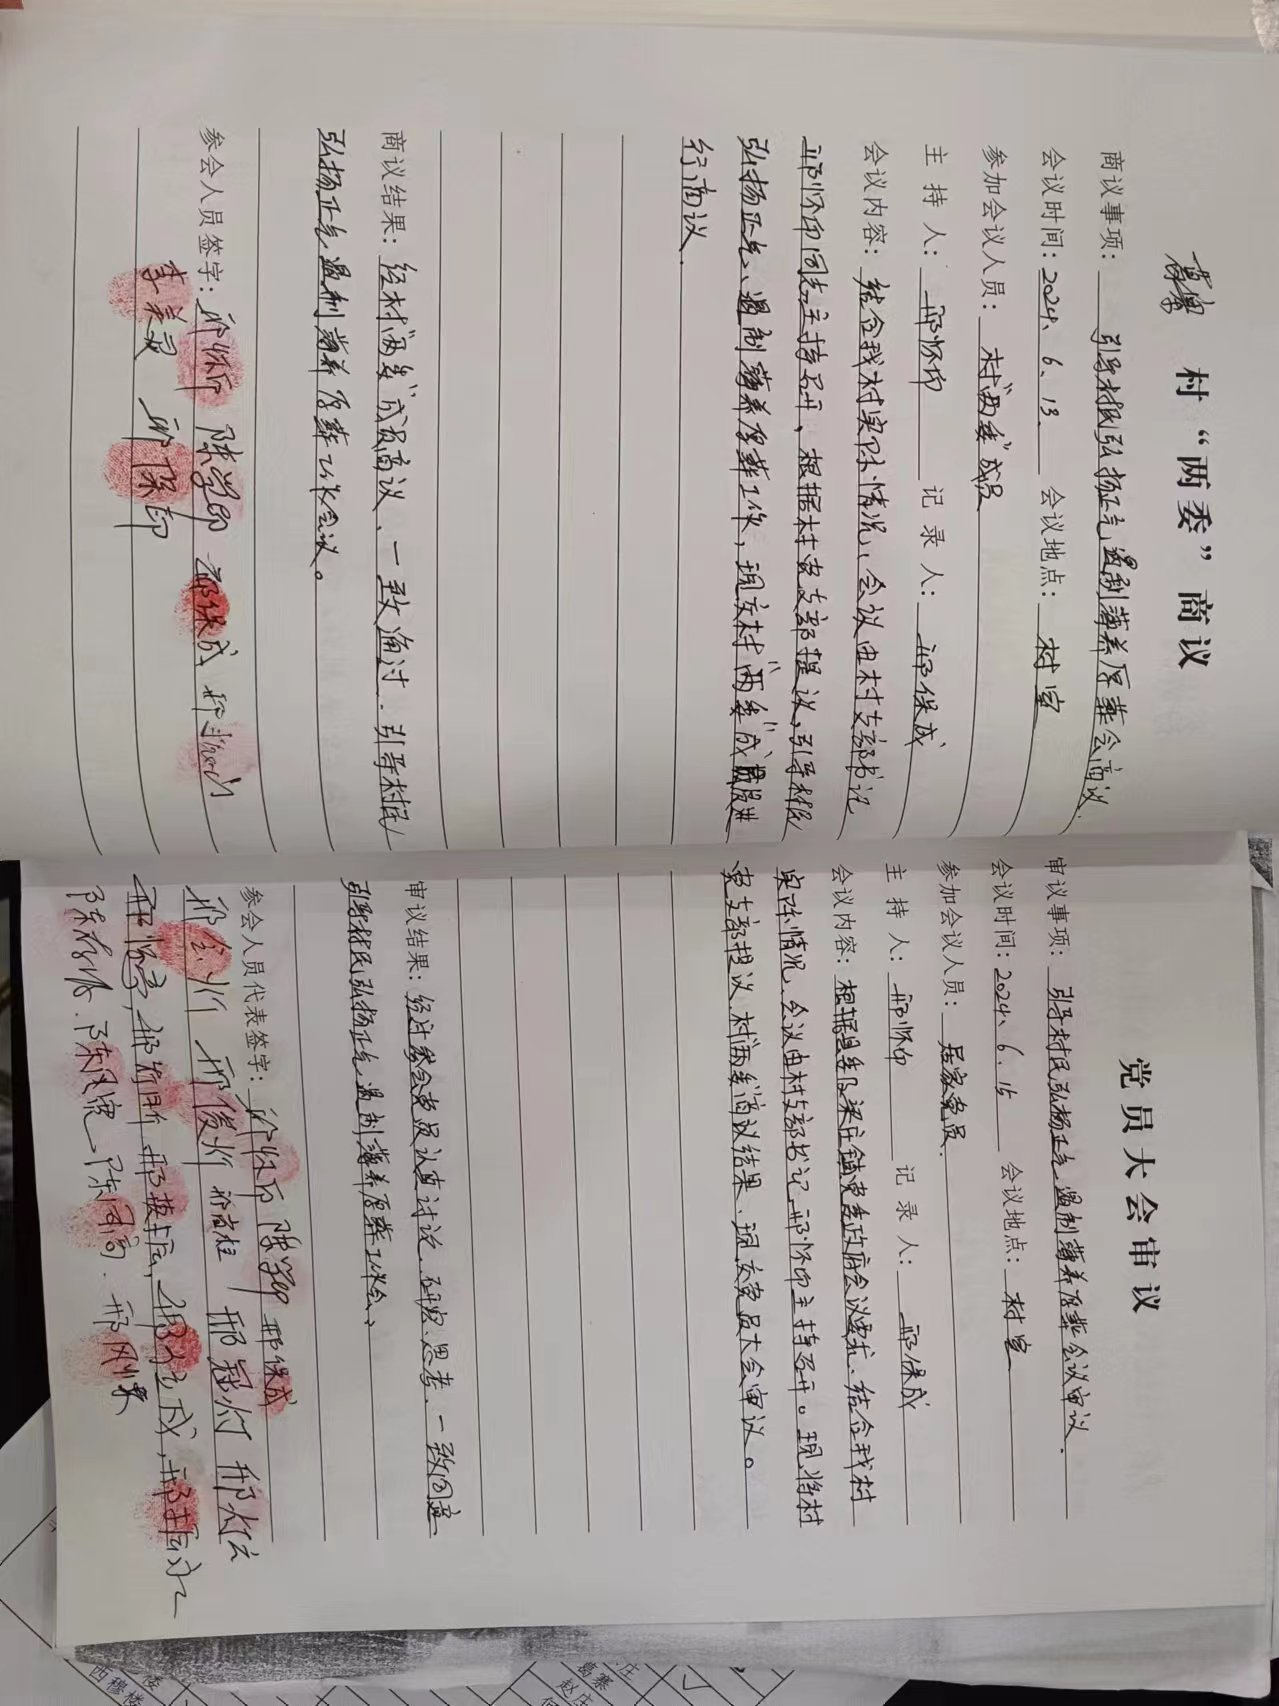 葛寨 村“两委”商议
商议事项：引导村民弘扬正气遏制薄养厚葬会商议.
会议时间：2024、6、13. 会议地点：村室
参加会议人员：村“两委”成员
主持人：邢怀印 记录人：邢保成
会议内容：结合我村实际情况，会议由村支部书记
邢怀印同志主持召开，根据村党支部提议，引导村民
弘扬正气、遏制薄养厚葬工作，现交村“两委”成员进
行商议.
商议结果：经村“两委”成员商议，一致通过.引导村民
弘扬正气遏制薄养厚葬工作会议。
参会人员签字：邢怀印 陈学印 邢保成
李美灵 邢保印
党员大会审议
审议事项：引导村民弘扬正气遏制薄养厚葬会议审议.
会议时间：2024、6、15 会议地点：村室
参加会议人员：居家党员.
主持人：邢怀印 记录人：邢保成
会议内容：根据县委及梁庄镇党委政府会议要求、结合我村
实际情况，会议由村支部书记邢怀印主持召开。现将村
党支部提议.村“两委”商议结果.现交党员大会审议。
审议结果：经过参会党员认真讨论、研究、思考、一致同意
引导村民弘扬正气遏制薄养厚葬工作会、
参会人员代表签字：邢怀印 陈学印 邢保成
邢俊灯 邢冠灯
邢刚
西穆楼
葛寨
赵庄